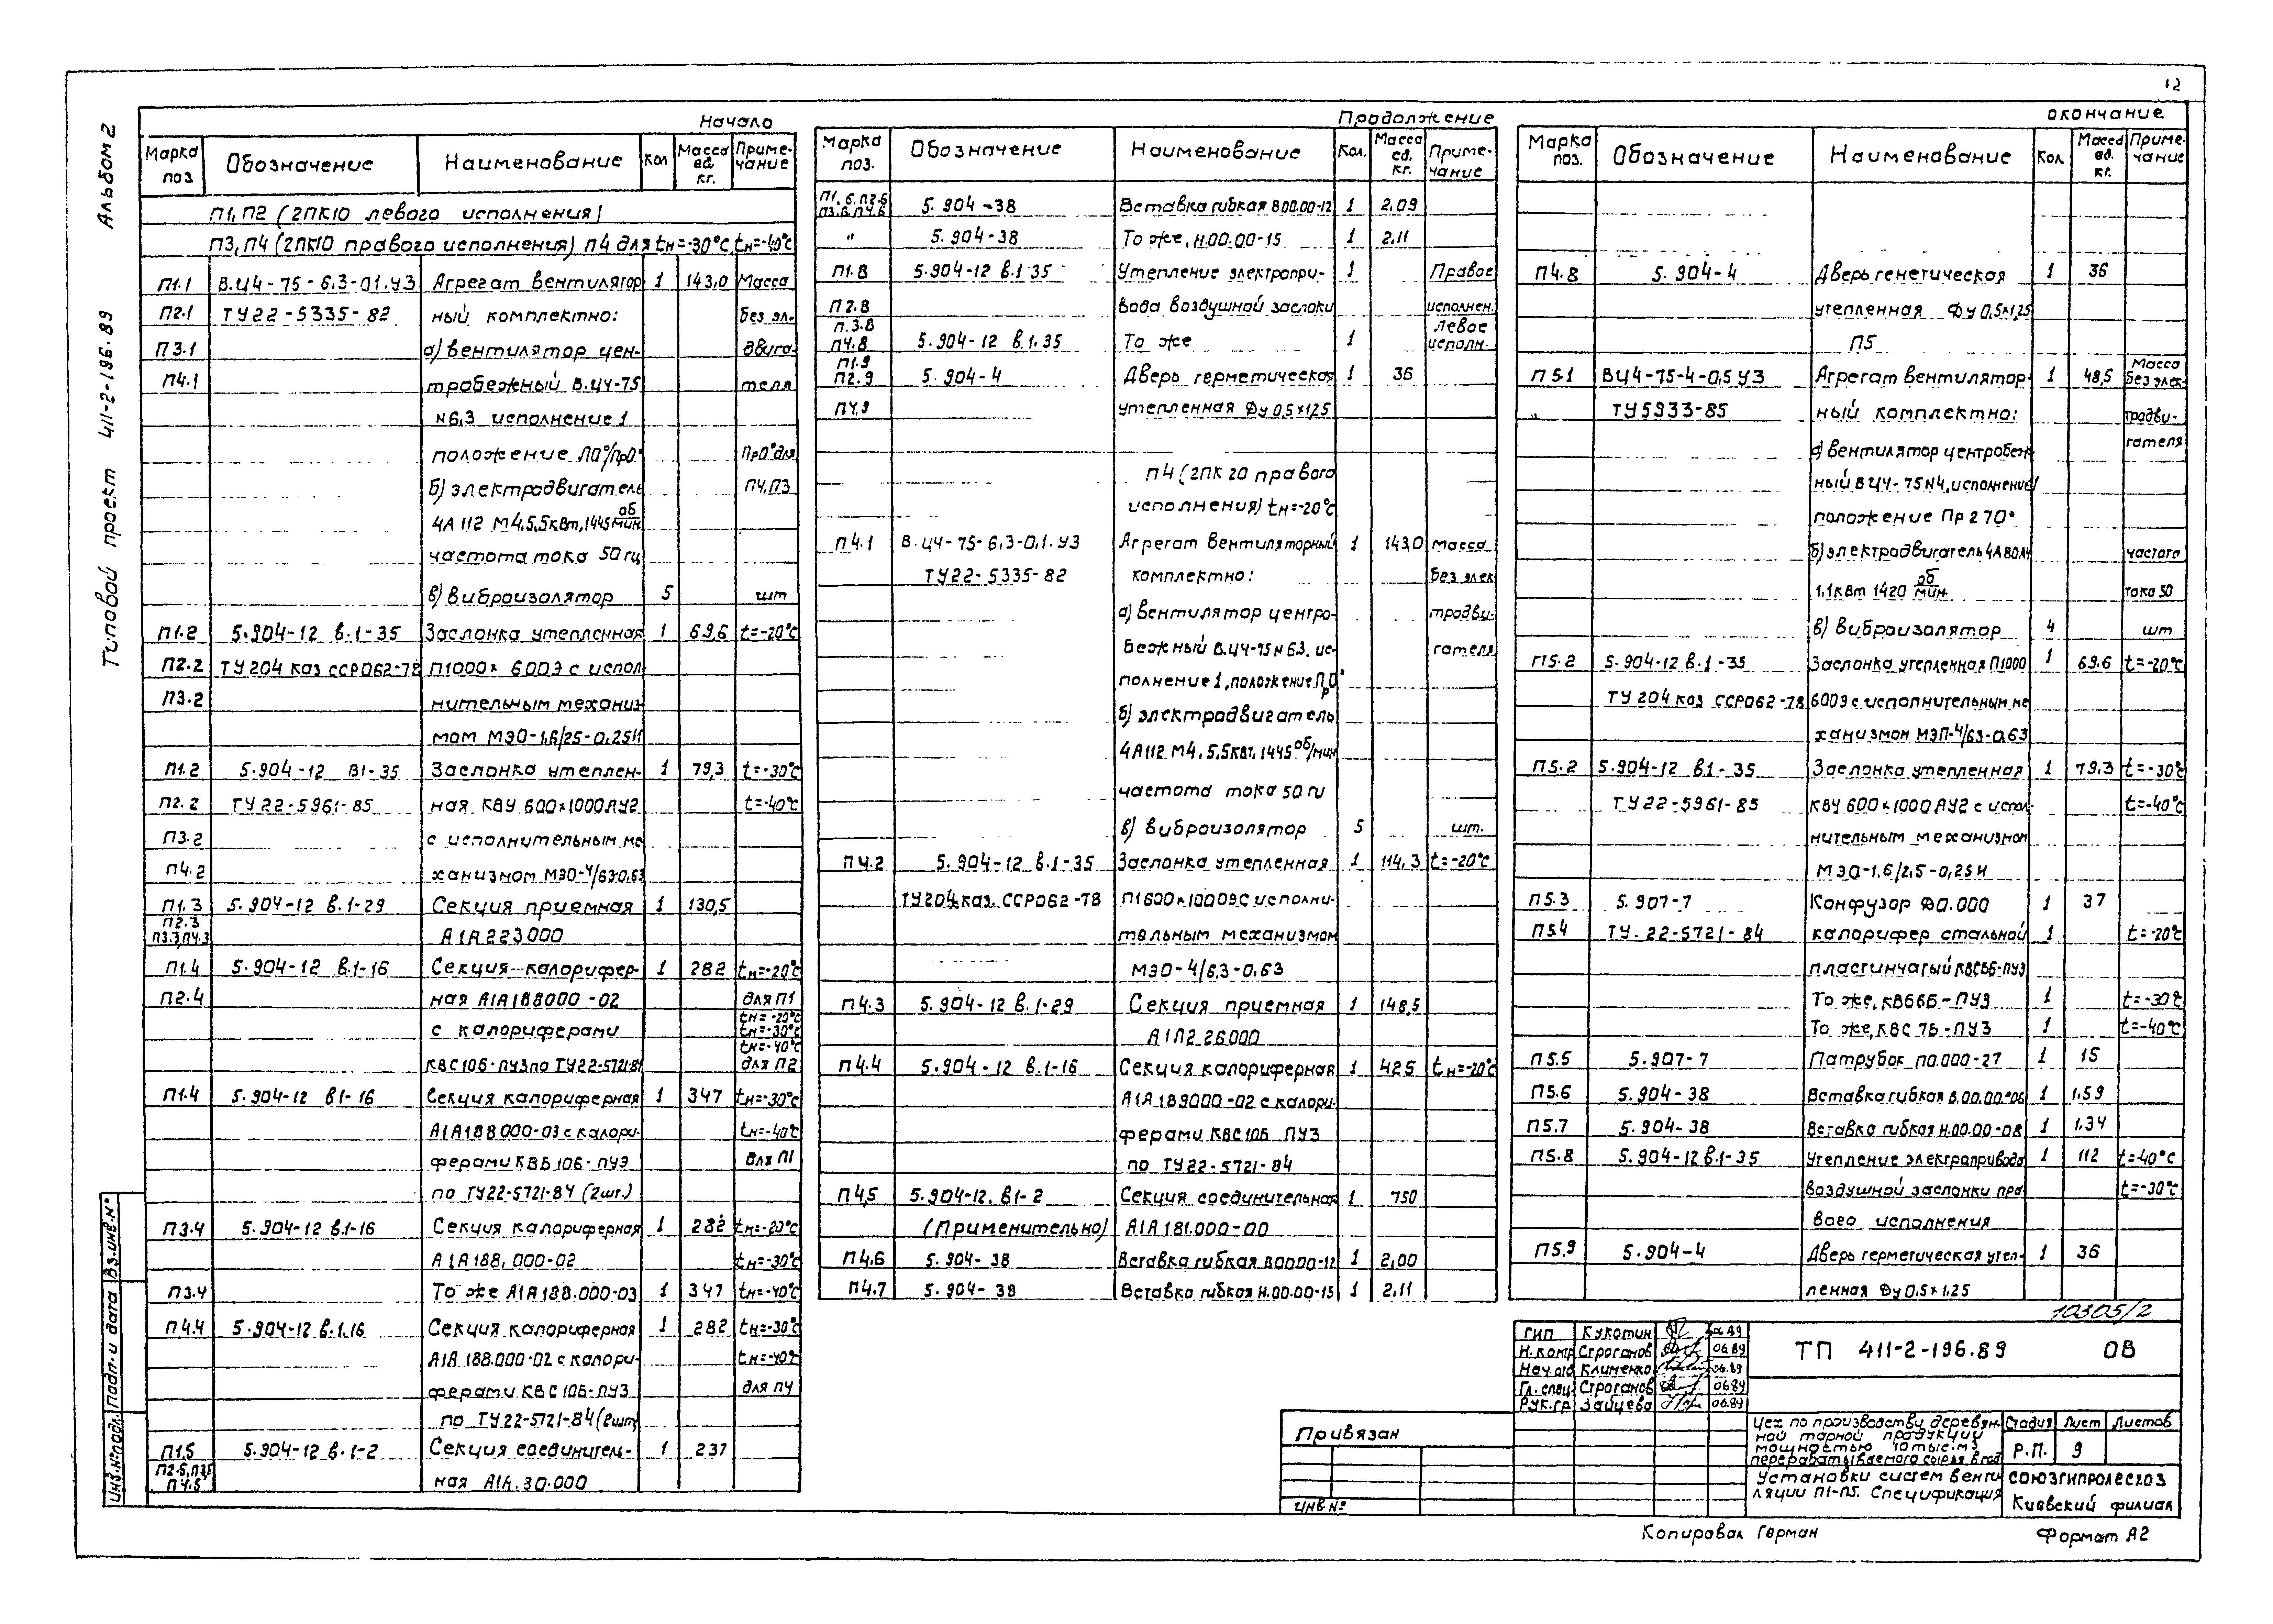 12
Альбом 2
Типовой проект 411-2-196.89
Начало
Марка поз Обозначение Наименование Кол Масса ед. кг. Приме-чание
П1, П2 (2ПК10 левого исполнения)
П3, П4 (2ПК10 правого исполнения) П4 для tн=-30°С, tн=-40°С
П1.1 В.Ц4-75-6,3-01.У3 Агрегат вентилятор- 1 143,0 Масса
П2.1 ТУ22-5335-82 ный комплектно: без эл.
П3.1 а) вентилятор цен- двига-
П4.1 тробежный В.Ц4-75 теля
N6,3 исполнение 1
положение Л0°/Пр0° Пр0° для
б) электродвигатель П4,П3
4А112 М4,5,5кВт,1445 об/мин
частота тока 50 гц
в) виброизолятор 5 шт
П1.2 5.904-12 в.1-35 Заслонка утепленная 1 69,6 t=-20°С
П2.2 ТУ204 каз ССР062-78 П1000х 600Э с испол
П3.2 нительным механиз
мом МЭО-1,6/25-0,25И
П1.2 5.904-12 В1-35 Заслонка утеплен- 1 79,3 t=-30°С
П2.2 ТУ22-5961-85 ная КВУ 600х1000АУ2 t=-40°С
П3.2 с исполнительным ме
П4.2 ханизмом МЭО-4/63-0,63
П1.3 5.904-12 в.1-29 Секция приемная 1 130,5
П2.3
П3.3,П4.3 А1А223000
П1.4 5.904-12 в.1-16 Секция калорифер- 1 282 tн=-20°С
П2.4 ная А1А188000-02 для П1
с калориферами tн=-20°С tн=-30°С
КВС10Б-ПУ3 по ТУ22-5721-84 tн=-40°С для П2
П1.4 5.904-12 в1-16 Секция калориферная 1 347 tн=-30°С
А1А188000-03 с калори- tн=-40°С
ферами КВБ10Б-ПУЭ для П1
по ТУ22-5721-84 (2шт.)
П3.4 5.904-12 в.1-16 Секция калориферная 1 282 tн=-20°С
А1А188.000-02 tн=-30°С
П3.4 То же А1А188.000-03 1 347 tн=-40°С
П4.4 5.904-12 в.1.16 Секция калориферная 1 282 tн=-30°С
А1А 188.000-02 с калори- tн=-40°С
ферами КВС10Б-ПУ3 для П4
по ТУ22-5721-84 (2шт)
П1.5 5.904-12 в.1-2 Секция соединител- 1 237
П2.5,П3.5 П4.5 ная А1А.30.000
Продолжение
Марка поз. Обозначение Наименование Кол. Масса ед. кг. Приме-чание
П1.6.П2.6 П3.6.П4.6 5.904-38 Вставка гибкая В00.00-12 1 2,09
" 5.904-38 То же, Н.00.00-15 1 2,11
П1.8 5.904-12 в.1 35 Утепление электропри- 1 Правое
П2.8 вода воздушной заслонки исполнен.
П.3.8 левое
П4.8 5.904-12 в.1.35 То же 1 исполн.
П1.9
П2.9 5.904-4 Дверь герметическая 1 36
П4.9 утепленная Ду 0,5х1,25
П4 (2ПК 20 правого
исполнения) tн=-20°С
П4.1 В.Ц4-75-6,3-0,1.У3 Агрегат вентиляторный 1 143,0 масса
ТУ22-5335-82 комплектно: без элек
а) вентилятор центро- тродви-
бежный В.Ц4-75 N 6.3, ис- гателя
полнение 1, положение Пр0°
б) электродвигатель
4А112 М4, 5,5кВт, 1445 об/мин
частота тока 50 гц
в) виброизолятор 5 шт.
П4.2 5.904-12 в.1-35 Заслонка утепленная 1 114,3 t=-20°С
ТУ204 каз. ССР062-78 П1600х1000Э с исполни-
тельным механизмом
МЭО-4/6,3-0,63
П4.3 5.904-12 в.1-29 Секция приемная 1 148,5
А1А226000
П4.4 5.904-12 в.1-16 Секция калориферная 1 425 tн=-20°С
А1А189000-02 с калори-
ферами КВС10Б ПУ3
по ТУ22-5721-84
П4,5 5.904-12. в1-2 Секция соединительная 1 750
(Применительно) А1А181.000-00
П4.6 5.904-38 Вставка гибкая В00.00-12 1 2,00
П4.7 5.904-38 Вставка гибкая Н.00.00-15 1 2,11
окончание
Марка поз. Обозначение Наименование Кол Масса ед. кг. Приме-чание
П4.8 5.904-4 Дверь генетическая 1 36
утепленная Ду 0,5х1,25
П5
П5.1 ВЦ4-75-4-0,5 У3 Агрегат вентилятор- 1 48,5 Масса без элек-
" ТУ5933-85 ный комплектно: тродви-
а) вентилятор центробеж гателя
ный В Ц4-75 N4, исполнение 1
положение Пр 270°
б) электродвигатель 4А80А4 частота
1,1кВт 1420 об/мин тока 50
в) виброизолятор 4 шт
П5.2 5.904-12 в.1-35 Заслонка утепленная П1000 1 69.6 t=-20°С
ТУ 204 каз ССР062-78 600Э с исполнительным ме
ханизмом МЭП-4/63-0,63
П5.2 5.904-12 в1-35 Заслонка утепленная 1 79.3 t=-30°С
ТУ 22-5961-85 КВУ 600х1000АУ2 с испол- t=-40°С
нительным механизмом
МЭО-1,6/2,5-0,25И
П5.3 5.907-7 Конфузор Д0.000 1 37
П5.4 ТУ. 22-5721-84 калорифер стальной 1 t=-20°С
пластинчатый КВСБ6-ПУ3
То же, КВБ6Б-ПУ3 1 t=-30°С
То же, КВС 7Б-ПУ3 1 t=-40°С
П5.5 5.907-7 Патрубок П0.000-27 1 15
П5.6 5.904-38 Вставка гибкая В.00.00-06 1 1,59
П5.7 5.904-38 Вставка гибкая Н.00.00-08 1 1,34
П5.8 5.904-12 в.1-35 Утепление электропривода 1 112 t=-40°С
воздушной заслонки пра- t=-30°С
вого исполнения
П5.9 5.904-4 Дверь герметическая утеп- 1 36
ленная Ду 0,5х1,25
10305/2
ГИП Кукотин
Н.контр Строганов 06.89
Нач.отд Клименко 06.89
Гл.спец. Строганов 06.89
Рук.гр Зайцева 06.89
ТП 411-2-196.89 ОВ
Цех по производству деревян-
ной тарной продукции
мощностью 10 тыс. м3
перерабатываемого сырья в год
Стадия Лист Листов
Р.П. 9
Установки систем венти
ляции П1-П5. Спецификация
СОЮЗГИПРОЛЕСХОЗ
Киевский филиал
Привязан
ИНВ.N°
Инв.№подл. Подп. и дата Вз.инв.№
Копировал Герман Формат А2